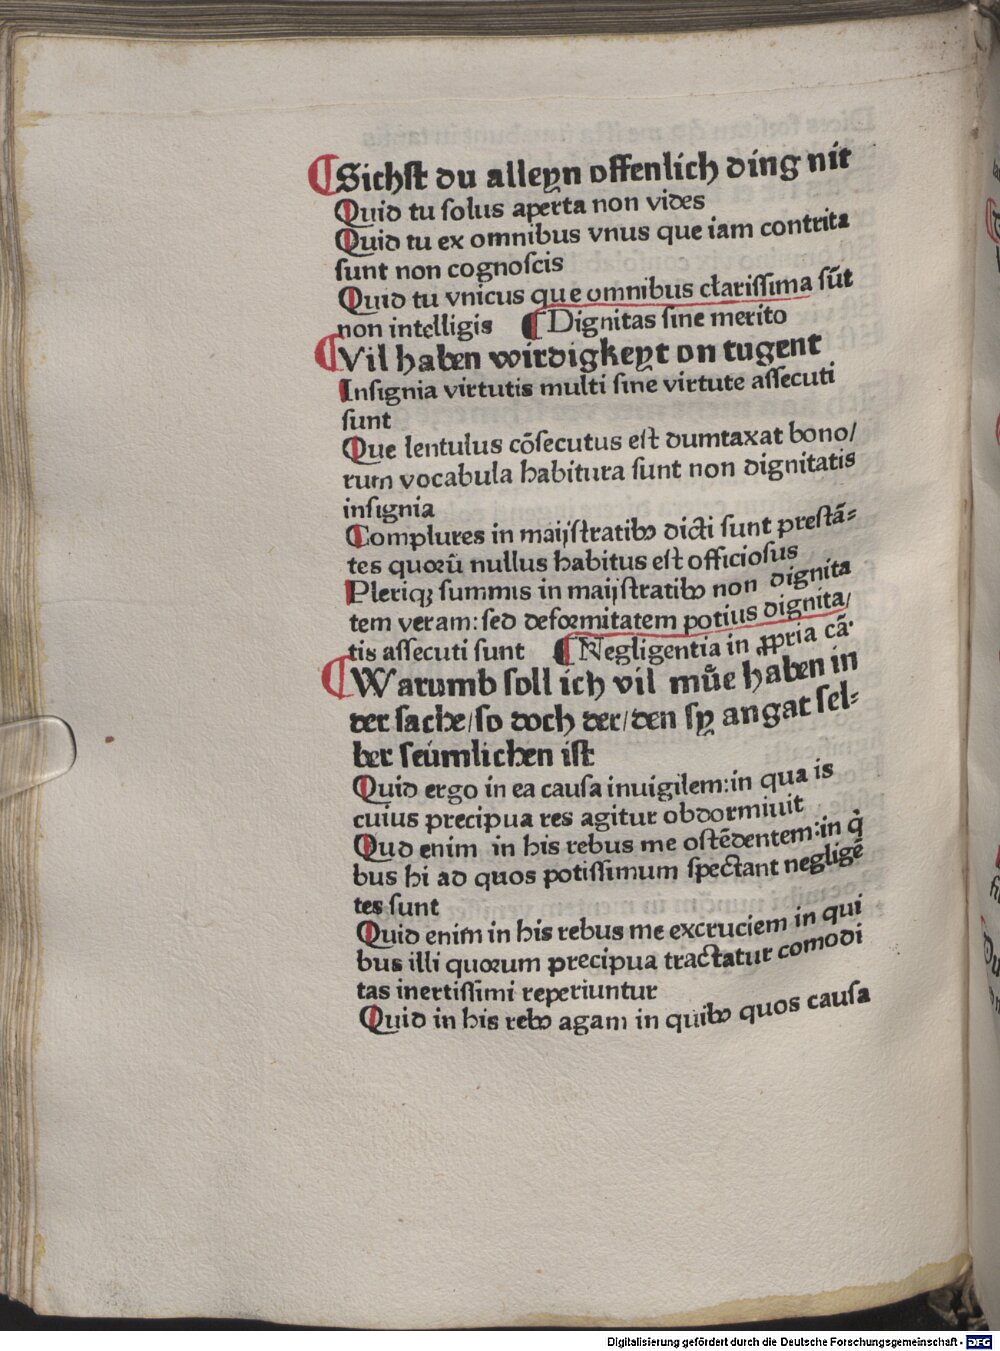 ¶Sichst du alleyn offenlich ding nit
Quid tu solus aperta non vides
Quid tu ex omnibus vnus que iam contrita
sunt non cognoscis
Quid tu vnicus que omnibus clarissima sūt
non intelligis ¶Dignitas sine merito
¶Vil haben wirdigkeyt on tugent
Insignia virtutis multi sine virtute assecuti
sunt
Que lentulus cōsecutus est dumtaxat bono/
rum vocabula habitura sunt non dignitatis
insignia
Complures in maijstratibꝰ dicti sunt prestā⸗
tes quoꝛū nullus habitus est officiosus
Pleriqꝫ summis in maijstratibꝰ non dignita
tem veram: sed defoꝛmitatem potius dignita/
tis assecuti sunt ¶Negligentia in ꝓpria cā.
¶Warumb soll ich vil muͤe haben in
der sache/so doch der/den sy angat sel⸗
ber seümlichen ist
Quid ergo in ea causa inuigilem: in qua is
cuius precipua res agitur obdormiuit
Quo enim in his rebus me ostēdentem: in q̇
bus hi ad quos potissimum spectant negligē
tes sunt
Quid enim in his rebus me excruciem in qui
bus illi quoꝛum precipua tractatur comodi
tas inertissimi reperiuntur
Quid in his rebꝰ agam in quibꝰ quos causa
Digitalisierung gefördert durch die Deutsche Forschungsgemeinschaft - DFG